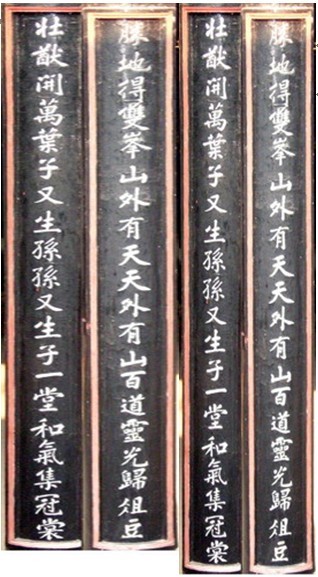 勝地得雙峯山外有天天外有山百道靈光歸俎豆
壯猷開萬葉子又生孫孫又生子一堂和氣集冠裳
勝地得雙峯山外有天天外有山百道靈光歸俎豆
壯猷開萬葉子又生孫孫又生子一堂和氣集冠裳